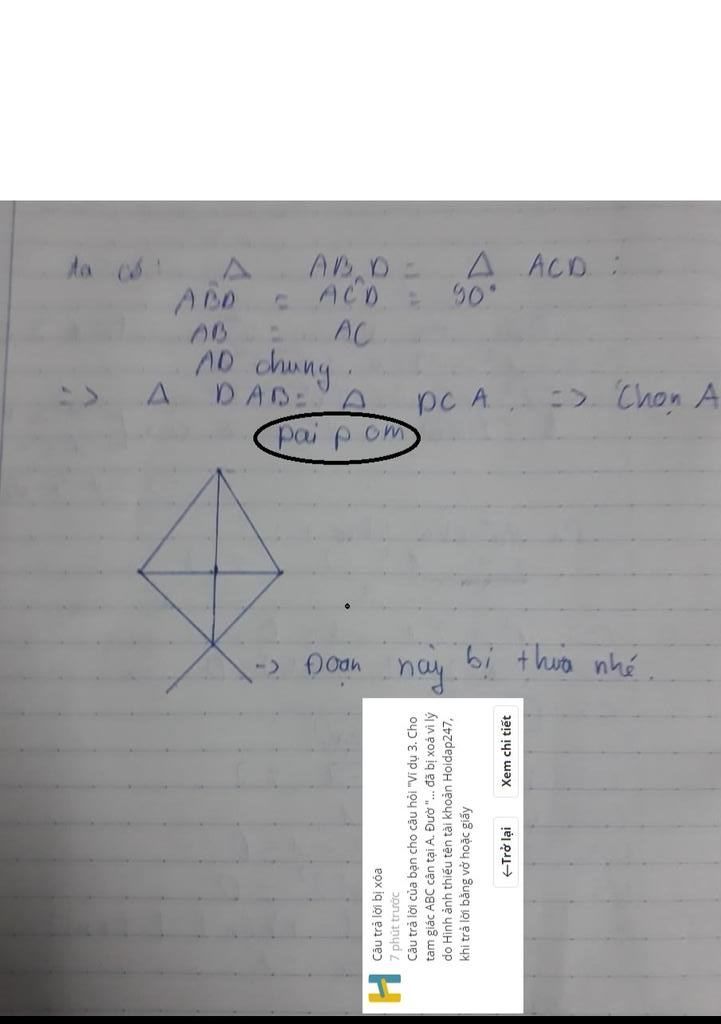 ta có: Δ ABD = Δ ACD :
ABD = ACD = 90°
AB = AC
AD chung.
=> Δ DAB = Δ DCA. => Chọn A
pai p om
-> Đoạn này bị thừa nhé.
Câu trả lời bị xóa
7 phút trước
Câu trả lời của bạn cho câu hỏi "Ví dụ 3. Cho
tam giác ABC cân tại A. Đườ "... đã bị xoá vì lý
do Hình ảnh thiếu tên tài khoản Hoidap247,
khi trả lời bằng vở hoặc giấy
←Trở lại Xem chi tiết